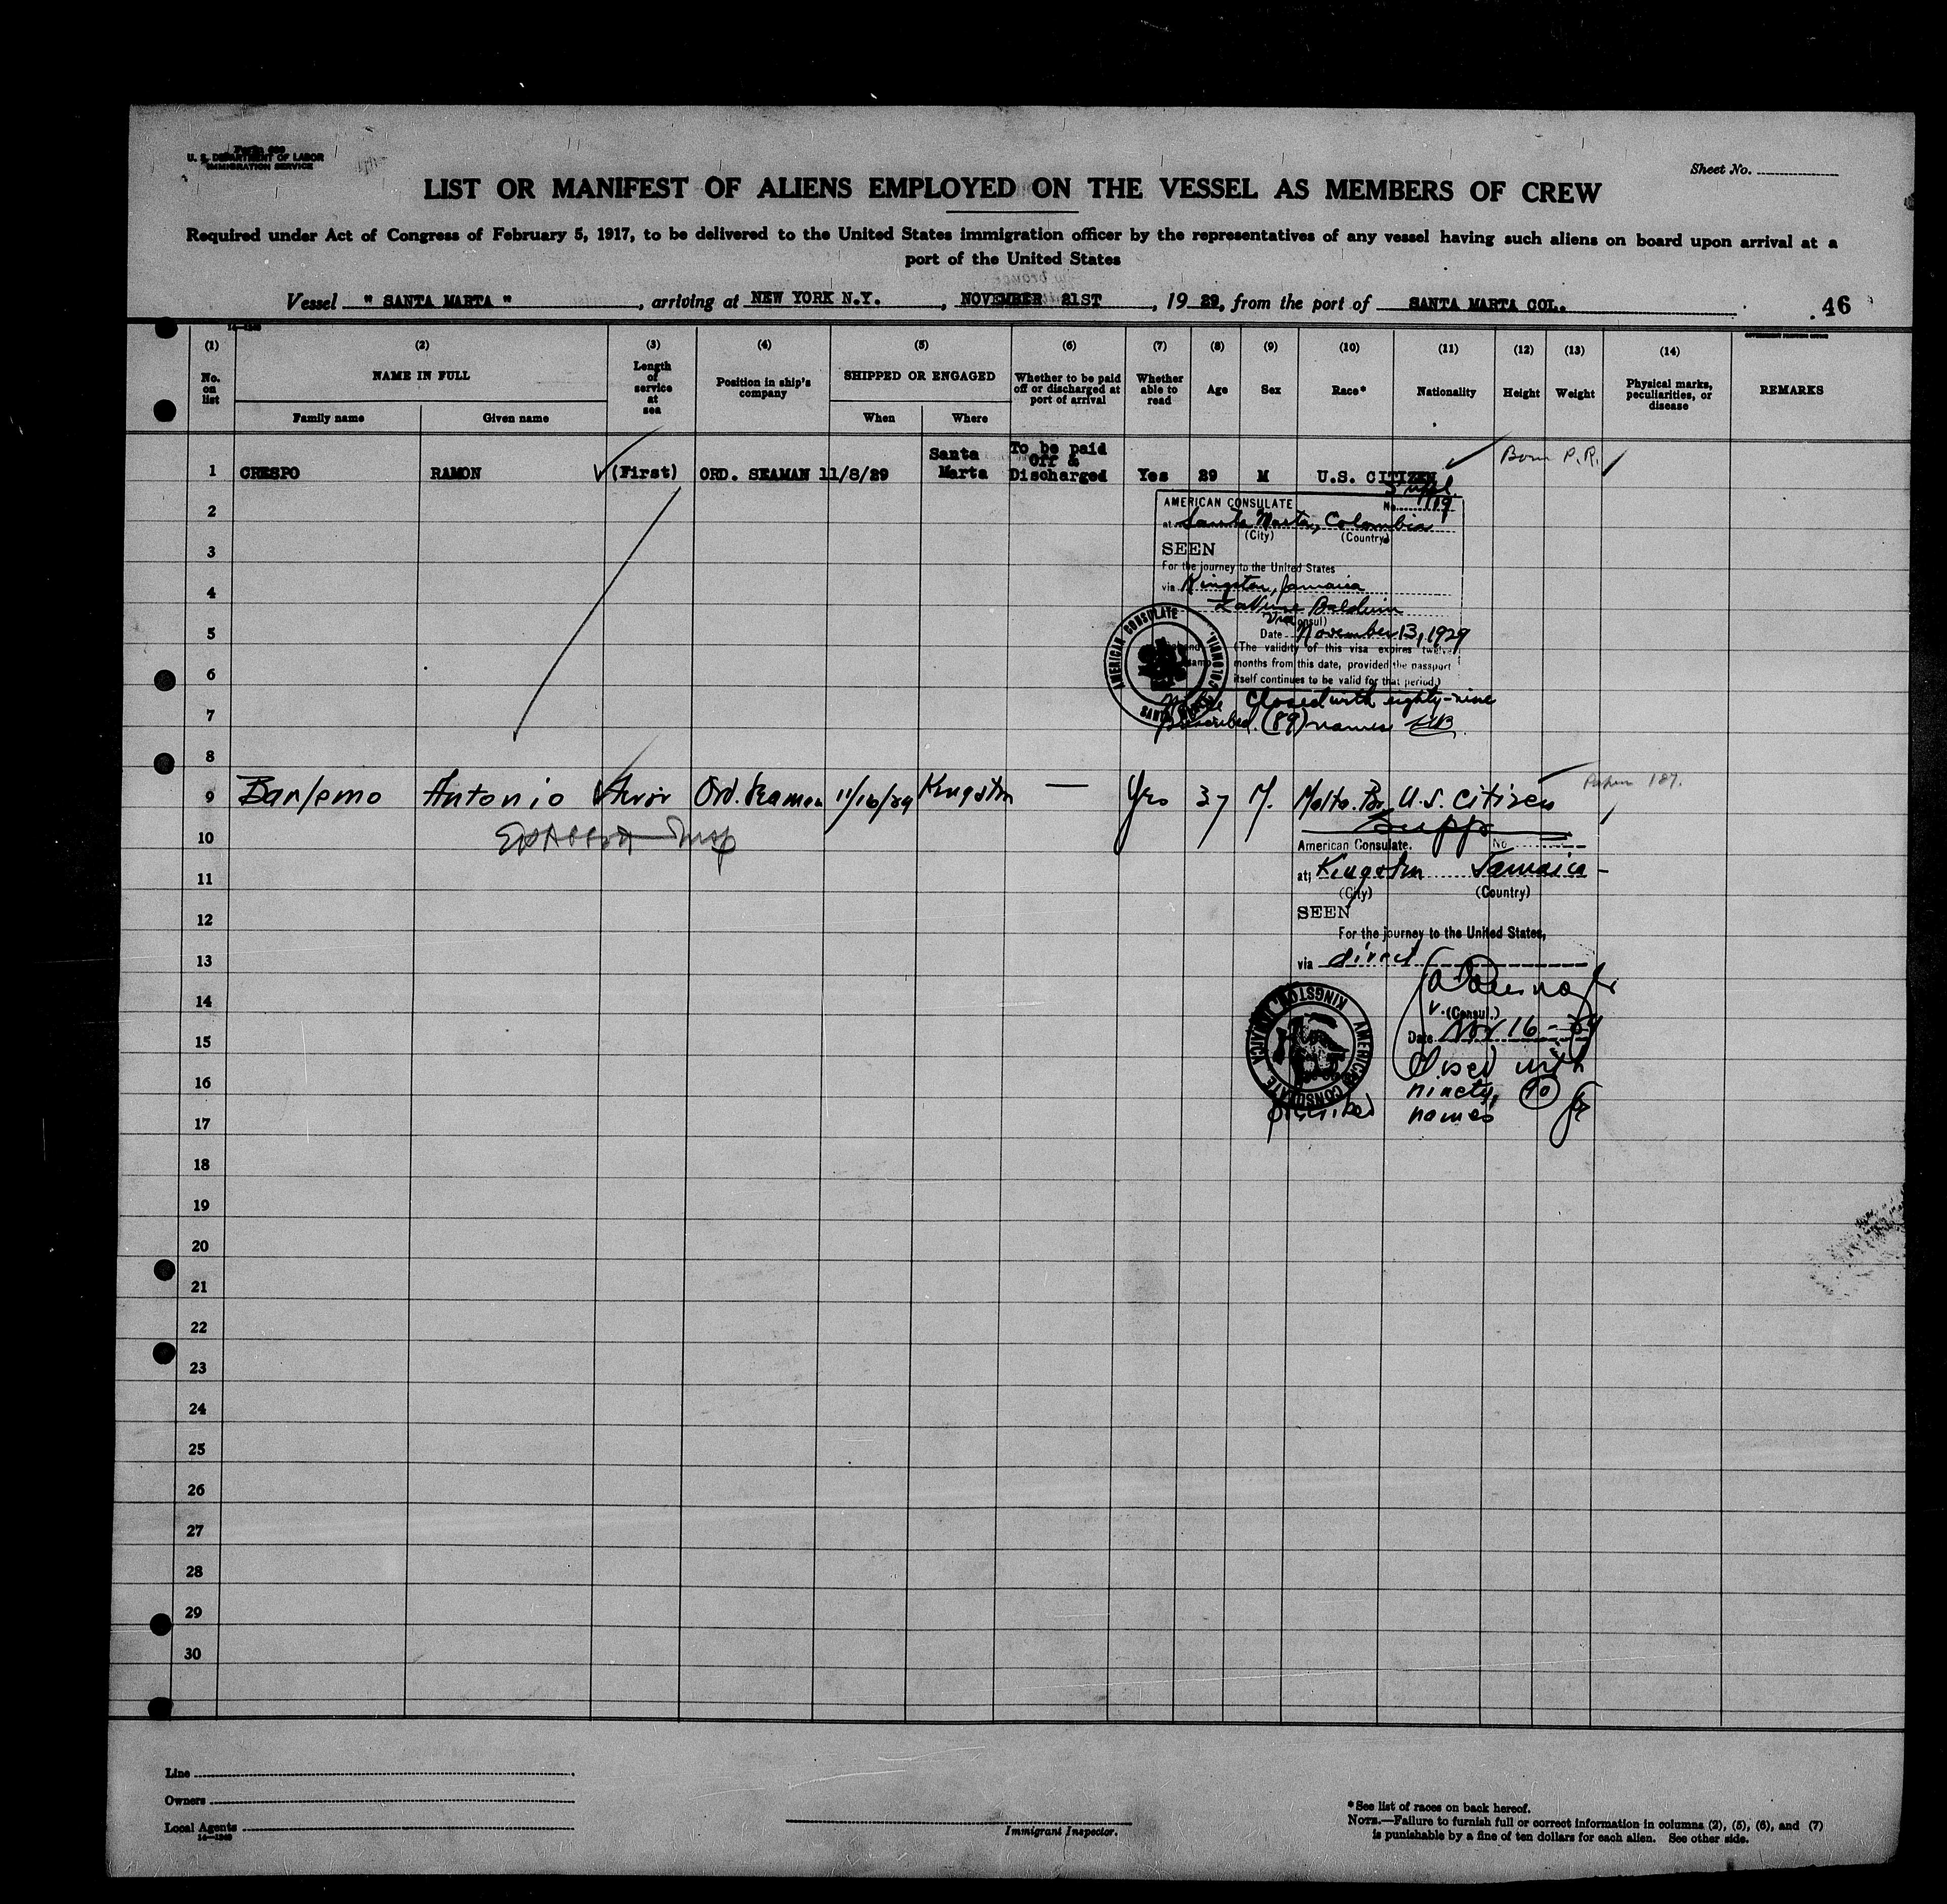 Form 689
U. S. DEPARTMENT OF LABOR
IMMIGRATION SERVICE
Sheet No.
LIST OR MANIFEST OF ALIENS EMPLOYED ON THE VESSEL AS MEMBERS OF CREW
Required under Act of Congress of February 5, 1917, to be delivered to the United States immigration officer by the representatives of any vessel having such aliens on board upon arrival at a
port of the United States
Vessel " SANTA MARTA ", arriving at NEW YORK N.Y., NOVEMBER 21ST, 19 29, from the port of SANTA MARTA COL. 46
14—1240
(1) (2) (3) (4) (5) (6) (7) (8) (9) (10) (11) (12) (13) (14)
No. on list
NAME IN FULL
Family name
Given name
Length of service at sea
Position in ship's company
SHIPPED OR ENGAGED
When
Where
Whether to be paid off or discharged at port of arrival
Whether able to read
Age
Sex
Race*
Nationality
Height
Weight
Physical marks, peculiarities, or disease
REMARKS
1 CRESPO RAMON (First) ORD. SEAMAN 11/8/29 Santa Marta To be paid Off & Discharged Yes 29 M U.S. CITIZEN Born P.R.
Suppl.
AMERICAN CONSULATE No. 119
at Santa Marta, Colombia
(City) (Country)
SEEN
For the journey to the United States
via Kingston, Jamaica
LaVerne Baldwin
Vice (Consul)
Date November 13, 1929
(The validity of this visa expires twelve
months from this date, provided the passport
itself continues to be valid for that period.)
AMERICAN CONSULATE SANTA MARTA, COLOMBIA
Closed with eighty-nine
(89) names LB
2
3
4
5
6
7
8
9 Antonio Ord. Seaman 11/16/29 Kingston — Yes 37 M. U.S. Citizen
10
Supp
American Consulate. No
at Kingston Jamaica
(City) (Country)
SEEN
For the journey to the United States,
via direct
V. (Consul.)
Date Nov 16 - 29
Closed with
ninety, 90
names
AMERICAN CONSULATE KINGSTON, JAMAICA
11
12
13
14
15
16
17
18
19
20
21
22
23
24
25
26
27
28
29
30
Line
Owners
Local Agents
14—1240
Immigrant Inspector.
*See list of races on back hereof.
NOTE.—Failure to furnish full or correct information in columns (2), (5), (6), and (7)
is punishable by a fine of ten dollars for each alien. See other side.